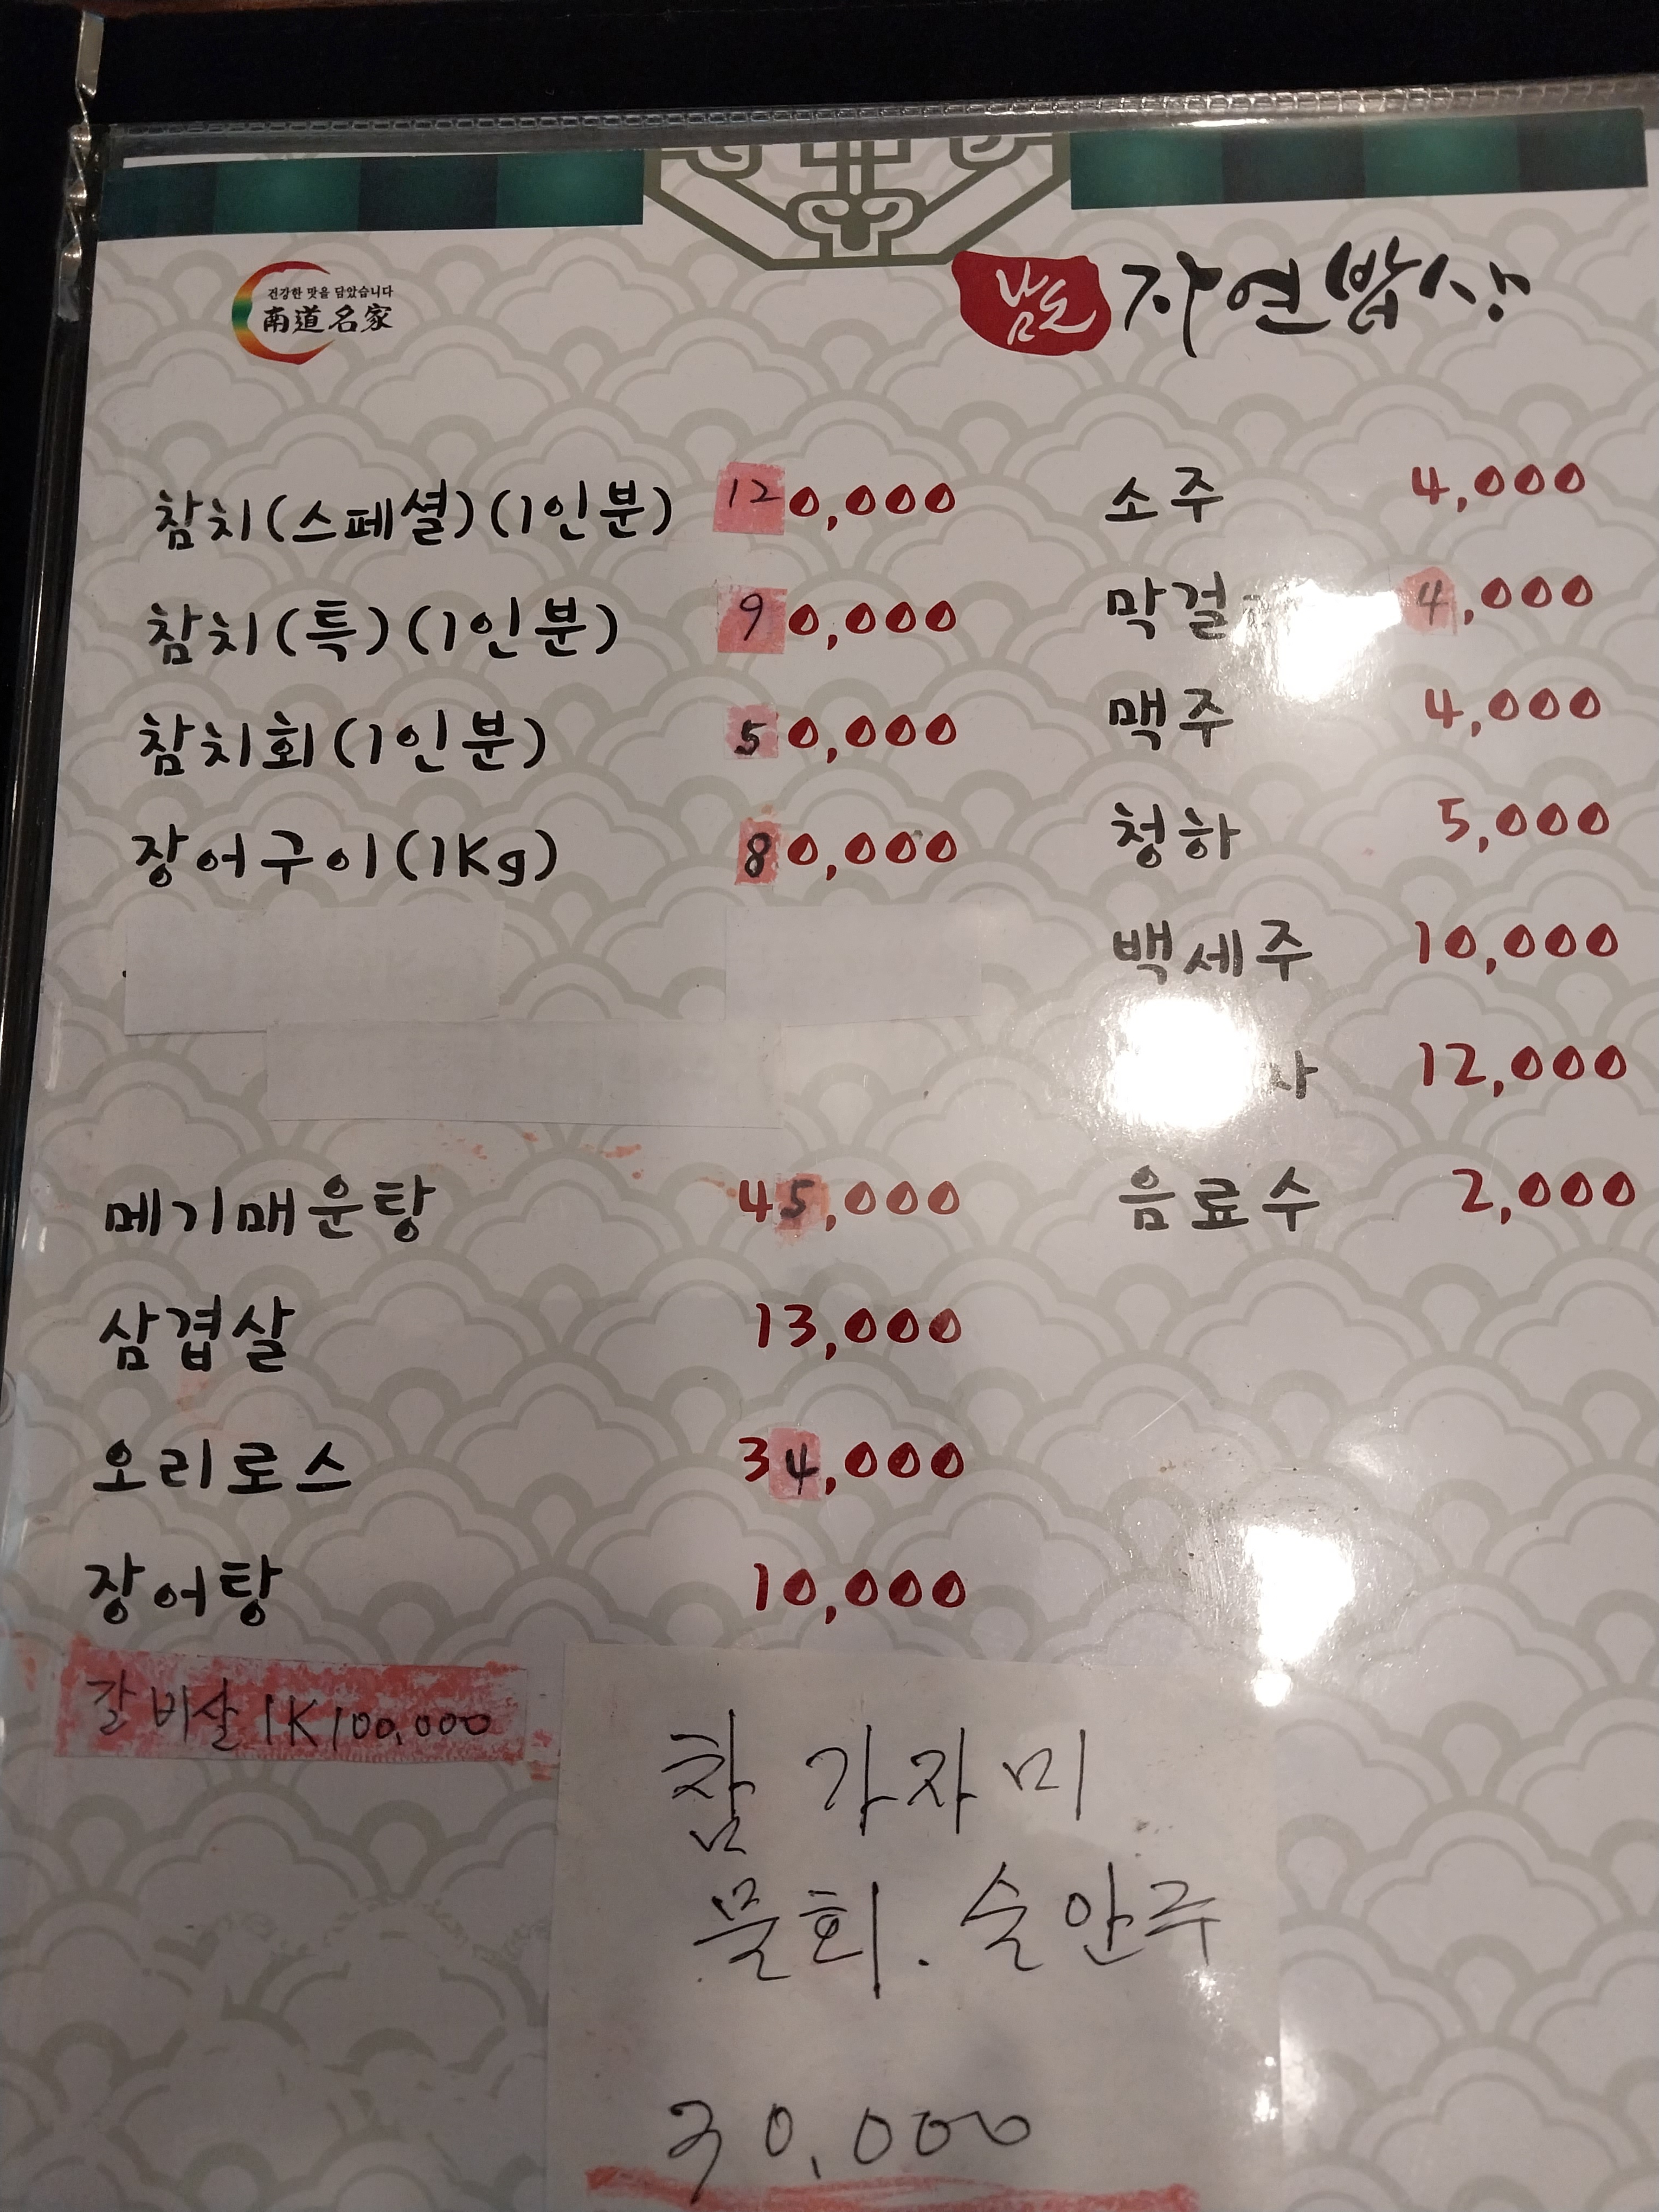 건강한 맛을 담았습니다
南道名家
남도 자연밥상
참치(스페셜)(1인분) 120,000
참치(특)(1인분) 90,000
참치회(1인분) 50,000
장어구이(1Kg) 80,000
메기매운탕 45,000
삼겹살 13,000
오리로스 34,000
장어탕 10,000
갈비살 1K 100,000
참가자미
물회. 술안주
30,000
소주 4,000
4,000
맥주 4,000
청하 5,000
백세주 10,000
12,000
음료수 2,000